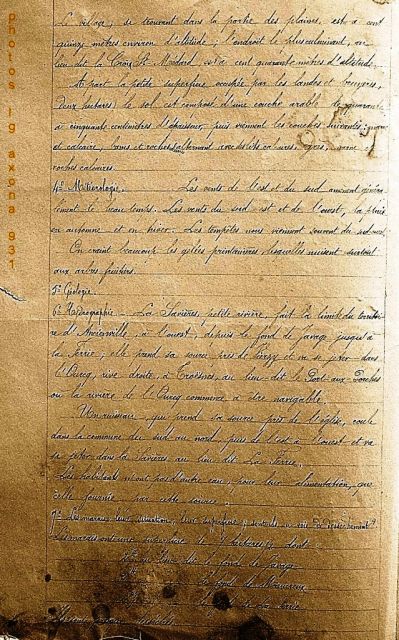 Le village, se trouvant dans la partie des plaines, est à cent
quinze mètres environ d'altitude; l'endroit le plus culminant, au
lieu dit la Croix St Médard est à cent quarante mètres d'altitude.
A part la petite superficie occupée par les landes et bruyères,
deux hectares) le sol est composé d'une couche arable de quarante
à cinquante centimètres d'épaisseur, puis viennent les couches suivantes:
de calcaire, bancs et roches alternant avec des lits calcaires,
roches calcaires.
4° Météorologie. Les vents de l'est et du sud amènent généra-
lement le beau temps. Les vents du sud est et de l'ouest, la pluie
en automne et en hiver. Les tempêtes nous viennent souvent du sud
On craint beaucoup les gelées printanières, lesquelles nuisent surtout
aux arbres fruitiers.
5° Géologie.
6° Hydrographie. - La Savières, petite rivière, fait la limite du territoi-
re d'Ancienville, à l'ouest, depuis le fond de Javage jusqu'à
la Ferrée; elle prend sa source près de et va se jeter dans
l'Ourcq, rive droite, à Troësnes, au lieu dit le Port aux Perches
où la rivière de l'Ourcq commence à être navigable.
Un ruisseau, qui prend sa source près de l'église, coule
dans la commune du sud au nord, puis de l'est à l'ouest et va
se jeter dans la Savières au lieu dit La Ferrée.
Les habitants n'ont pas d'autre eau, pour leur alimentation, que
celle fournie par cette source.
7° Les marais, leur situation, leur superficie, sont-ils en voie de dessèchement?
Les marais ont une superficie de 7 hectares dont:
au lieu dit le fond de Javage
le fond de
la
photos lg axona 931